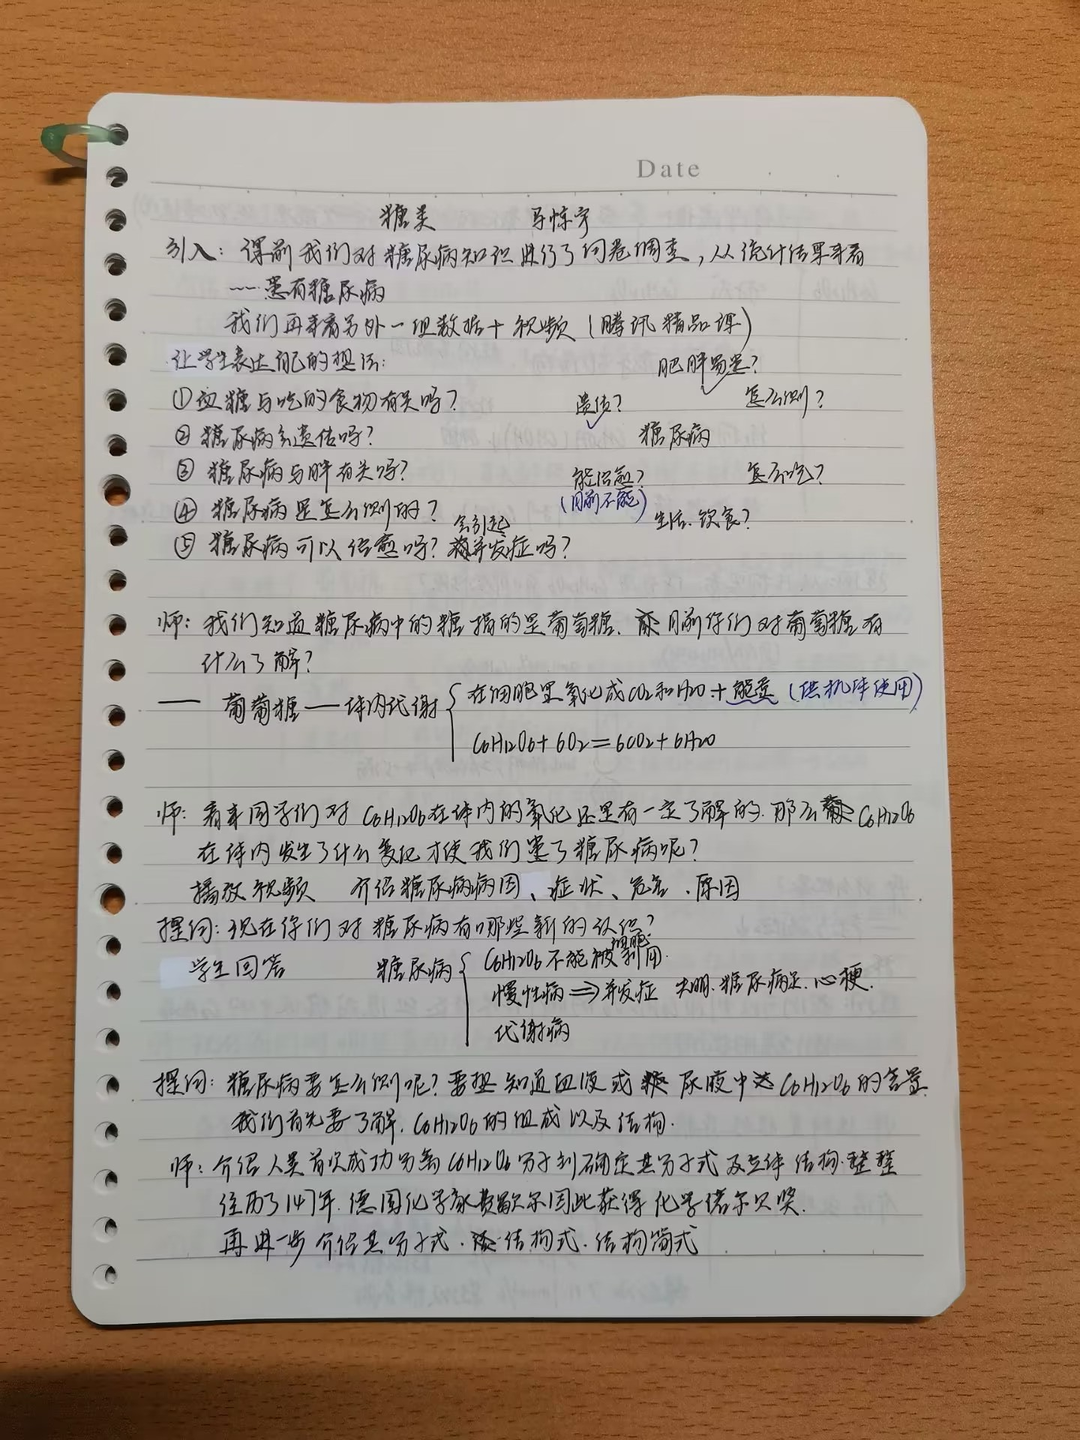 Date
糖类
引入：课前我们对糖尿病知识进行了问卷调查，从统计结果来看
……患有糖尿病
我们再来看另外一组数据+视频（腾讯精品课）
让学生表达自己的想法：
肥胖易患？
①血糖与吃的食物有关吗？
遗传？
怎么测？
②糖尿病会遗传吗？
糖尿病
③糖尿病与胖有关吗？
能治愈？
怎么吃？
(目前不能)
④糖尿病是怎么测的？
生活、饮食？
会引起
⑤糖尿病可以治愈吗？并发症吗？
师：我们知道糖尿病中的糖指的是葡萄糖、目前你们对葡萄糖有
什么了解？
—— 葡萄糖——体内代谢{在细胞里氧化成CO2和H2O+能量（供机体使用）
C6H12O6+6O2=6CO2+6H2O
师：看来同学们对C6H12O6在体内的氧化还是有一定了解的.那么C6H12O6
在体内发生了什么变化才使我们患了糖尿病呢？
播放视频 介绍糖尿病病因、症状、危害、原因
提问：现在你们对糖尿病有哪些新的认识？
学生回答 糖尿病{C6H12O6不能被细胞利用.
慢性病⇒并发症 失明.糖尿病足.心梗.
代谢病
提问：糖尿病要怎么测呢？要想知道血液或尿液中C6H12O6的含量
我们首先要了解.C6H12O6的组成以及结构.
师：介绍人类首次成功分离C6H12O6分子到确定其分子式及立体结构.整整
往历了147年.德国化学家费歇尔因此获得化学诺尔贝奖.
再进一步介绍其分子式.结构式.结构简式